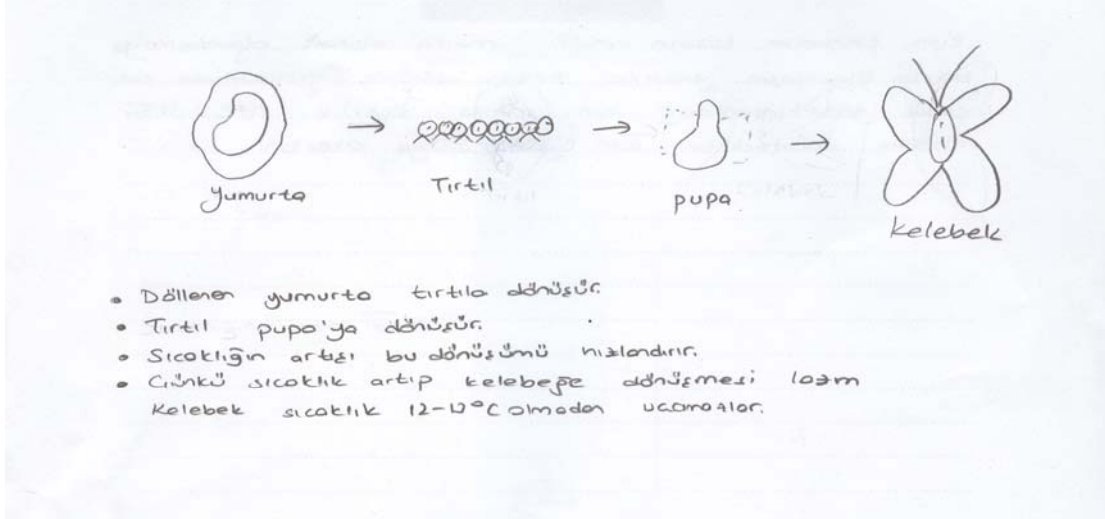 yumurta
Tırtıl
pupa
kelebek
• Döllenen yumurta tırtıla dönüşür.
• Tırtıl pupa'ya dönüşür.
• Sıcaklığın artışı bu dönüşümü hızlandırır.
• Çünkü sıcaklık artıp kelebeğe dönüşmesi lazım
Kelebek sıcaklık °C olmadan uçamazlar.